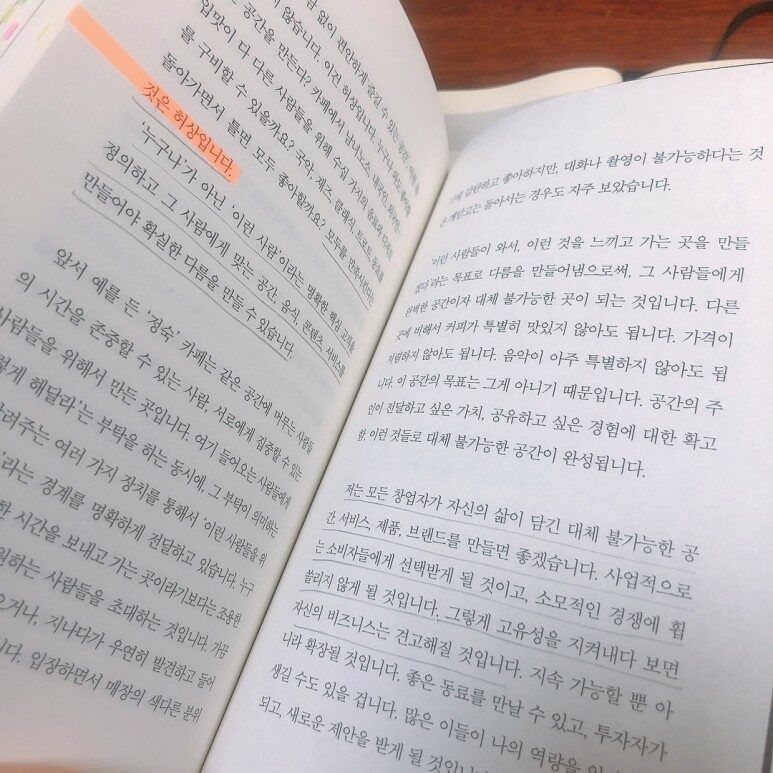 없이 편안하게 즐길 수 있는 공간,
않습니다. 이건 허상입니다. 누구나 와도 좋아할
공간을 만든다? 카페에서 남녀노소, 내국인, 외국인,
입맛이 다 다른 사람들을 위해 수십 가지의 음료와 디저트
를 구비할 수 있을까요? 국악, 재즈, 클래식, 트로트, 동요를
돌아가면서 틀면 모두 좋아할까요? 모두를 만족시킨다는
것은 허상입니다.
‘누구나’가 아닌 ‘이런 사람’이라는 명확한 핵심 고객을
정의하고, 그 사람에게 맞는 공간, 음식, 콘텐츠, 서비스를
만들어야 확실한 다름을 만들 수 있습니다.
앞서 예를 든 ‘정숙’ 카페는 같은 공간에 머무는 사람들
의 시간을 존중할 수 있는 사람, 서로에게 집중할 수 있는
사람들을 위해서 만든 곳입니다. 여기 들어오는 사람들에게
렇게 해달라’는 부탁을 하는 동시에, 그 부탁이 의미하는
려주는 여러 가지 장치를 통해서 ‘이런 사람들을 위
’라는 경계를 명확하게 전달하고 있습니다. 누구
한 시간을 보내고 가는 곳이라기보다는 조용한
원하는 사람들을 초대하는 것입니다. 가끔
오거나, 지나다가 우연히 발견하고 들어
니다. 입장하면서 매장의 색다른 분위
기에 감탄하고 좋아하지만, 대화나 촬영이 불가능하다는 것
을 깨닫고는 돌아서는 경우도 자주 보았습니다.
‘이런 사람들이 와서, 이런 것을 느끼고 가는 곳을 만들
겠다’라는 목표로 다름을 만들어냄으로써, 그 사람들에게
완벽한 공간이자 대체 불가능한 곳이 되는 것입니다. 다른
곳에 비해서 커피가 특별히 맛있지 않아도 됩니다. 가격이
저렴하지 않아도 됩니다. 음악이 아주 특별하지 않아도 됩
니다. 이 공간의 목표는 그게 아니기 때문입니다. 공간의 주
인이 전달하고 싶은 가치, 공유하고 싶은 경험에 대한 확고
함, 이런 것들로 대체 불가능한 공간이 완성됩니다.
저는 모든 창업자가 자신의 삶이 담긴 대체 불가능한 공
간, 서비스, 제품, 브랜드를 만들면 좋겠습니다. 사업적으로
는 소비자들에게 선택받게 될 것이고, 소모적인 경쟁에 휩
쓸리지 않게 될 것입니다. 그렇게 고유성을 지켜내다 보면
자신의 비즈니스는 견고해질 것입니다. 지속 가능할 뿐 아
니라 확장될 것입니다. 좋은 동료를 만날 수 있고, 투자자가
생길 수도 있을 겁니다. 많은 이들이 나의 역량을
되고, 새로운 제안을 받게 될 것입니다.